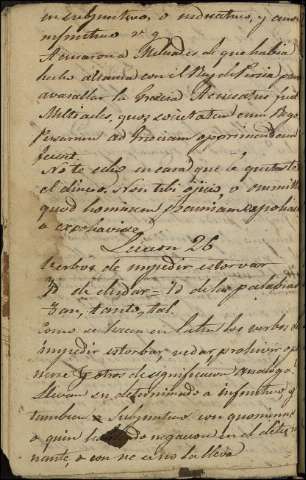 en subjuntivo, o indicativo, y con
infinitivo v. g.
Acusaron a Milciades de que habia
hecho alianza con el Rey de Persia para
avasallar la Grecia Accusatus fuit
Miltiades, quod societatem cum Rege
Persarum ad Greciam opprimendam
fecerit.
No te echo en cara que le quitaste
el dinero. Non tibi o
quod hominem pecuniam
o expoliaviss
Leccion 26
Verbos de impedir estorvar
Id de dudar = Id de las palabras
Tan, tanto, tal.
Como se hacen en latin los verbos de
impedir estorbar vedar prohivir opo
nerse y otros de significacion analoga
llevan su determinado a infinitivo, y
tambien a subjuntivo con quominus
o quin negacion en el deter
nante, o con ne si no la lleva